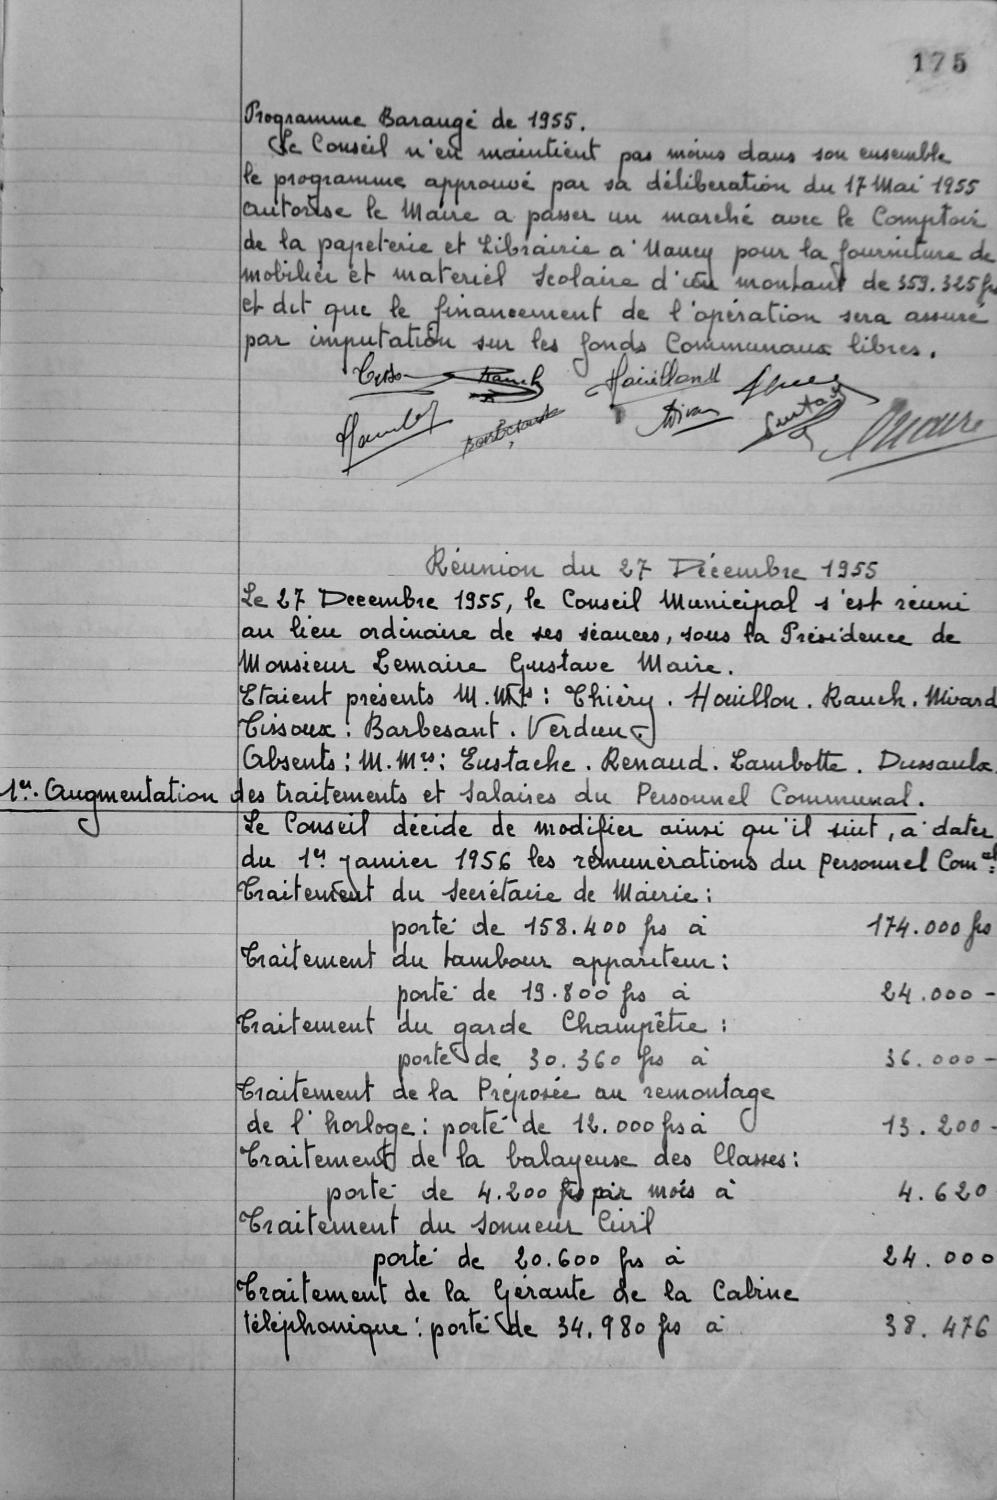 175
Programme Barangé de 1955.
Le Conseil n'en maintient pas moins dans son ensemble
le programme approuvé par sa délibération du 17 Mai 1955
autorise le Maire a passer un marché avec le Comptoir
de la papeterie et Librairie a Nancy pour la fourniture de
mobilier et materiel scolaire d'un montant de 359.325 frs
et dit que le financement de l'opération sera assuré
par imputation sur les fonds Communaux libres.
Réunion du 27 Décembre 1955
Le 27 Decembre 1955, le Conseil Municipal s'est réuni
au lieu ordinaire de ses séances, sous la Présidence de
Monsieur Lemaire Gustave Maire.
Etaient présents M.Mrs : Thiéry . Houillon . Rauch . Mirard
Tissoux . Barbesant . Verdun
Absents : M.Mrs : Eustache . Renaud . Lambotte . Dussaulx.
1er. Augmentation des traitements et salaires du Personnel Communal.
Le Conseil décide de modifier ainsi qu'il suit, a dater
du 1er Janvier 1956 les rémunérations du personnel Comal:
Traitement du secrétaire de Mairie :
porté de 158.400 frs à 174.000 frs
Traitement du tambour appariteur :
porté de 19.800 frs à 24.000 -
Traitement du garde Champêtre :
porté de 30.360 frs à 36.000 -
Traitement de la Préposée au remontage
de l'horloge : porté de 12.000 frs à 13.200 -
Traitement de la balayeuse des Classes :
porté de 4.200 frs par mois à 4.620
Traitement du sonneur Civil
porté de 20.600 frs à 24.000
Traitement de la Gérante de la Cabine
téléphonique : porté de 34.980 frs à 38.476